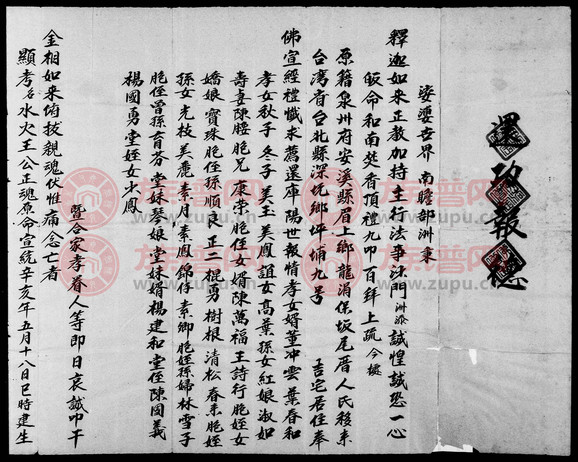 還功報德
娑婆世界 南瞻部洲東
釋迦如來正教加持主行法事沐門洲派誠惶誠恐一心
皈命和南焚香頂禮九叩百拜上疏 今據
原籍泉州府安溪縣眉上鄉龍涓保坂尾厝人氏移來
台灣省台北縣深坑鄉坪埔九号 吉宅居住奉
佛宣經禮懺求薦還庫陽世報情孝女婿董冲雲葉春和
孝女秋子 冬子 美玉 美鳳 誼女高葉 孫女紅娘 淑如
壽妻陳腰 胞兄康荣 胞侄女婿陳萬福 王詩行 胞侄女
嬌娘 寶珠 胞侄孫順良 正二 棍勇 樹根 清松 春来 胞侄
孫女允枝 美麗 素月 素鳳 錦仔 素卿 胞侄孫婦林雪子
胞侄曾孫育芬 堂妹琴娘 堂妹婿楊建和 堂侄陳國義
楊國勇 堂姪女火鳳
暨合家孝眷人等即日哀誠叩干
金相如來俯技親魂伏惟痛念亡者
顯考名水火王公正魂原命宣統辛亥年五月十八日巳時建生
族譜网
www.zupu.cn